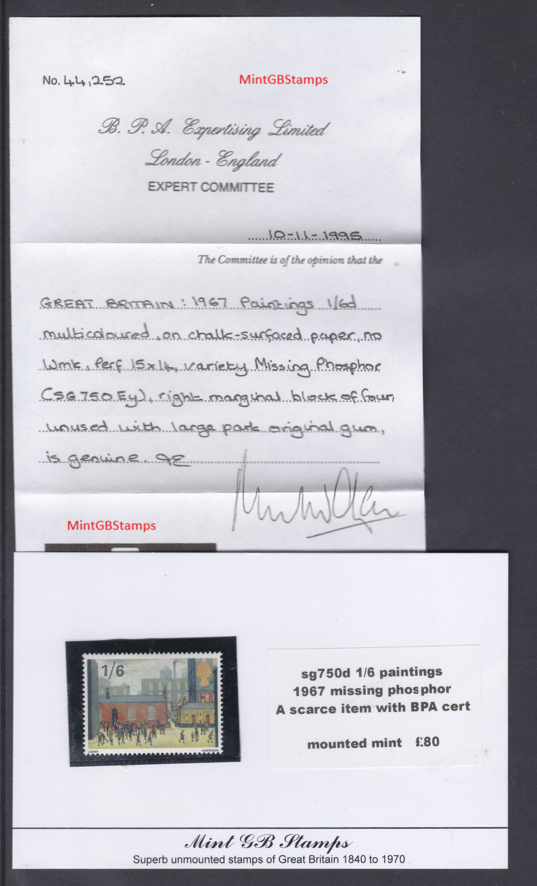 No. 44,252
MintGBStamps
B. P. A. Expertising Limited
London - England
EXPERT COMMITTEE
10-11-1995
The Committee is of the opinion that the
GREAT BRITAIN: 1967 Paintings 1/6d
multicoloured, on chalk-surfaced paper, no
Wmk. Perf 15x14, variety Missing Phosphor
(SG 750 Ey), right marginal block of four,
unused with large part original gum,
is genuine.
MintGBStamps
1/6
sg750d 1/6 paintings
1967 missing phosphor
A scarce item with BPA cert
mounted mint £80
Mint GB Stamps
Superb unmounted stamps of Great Britain 1840 to 1970